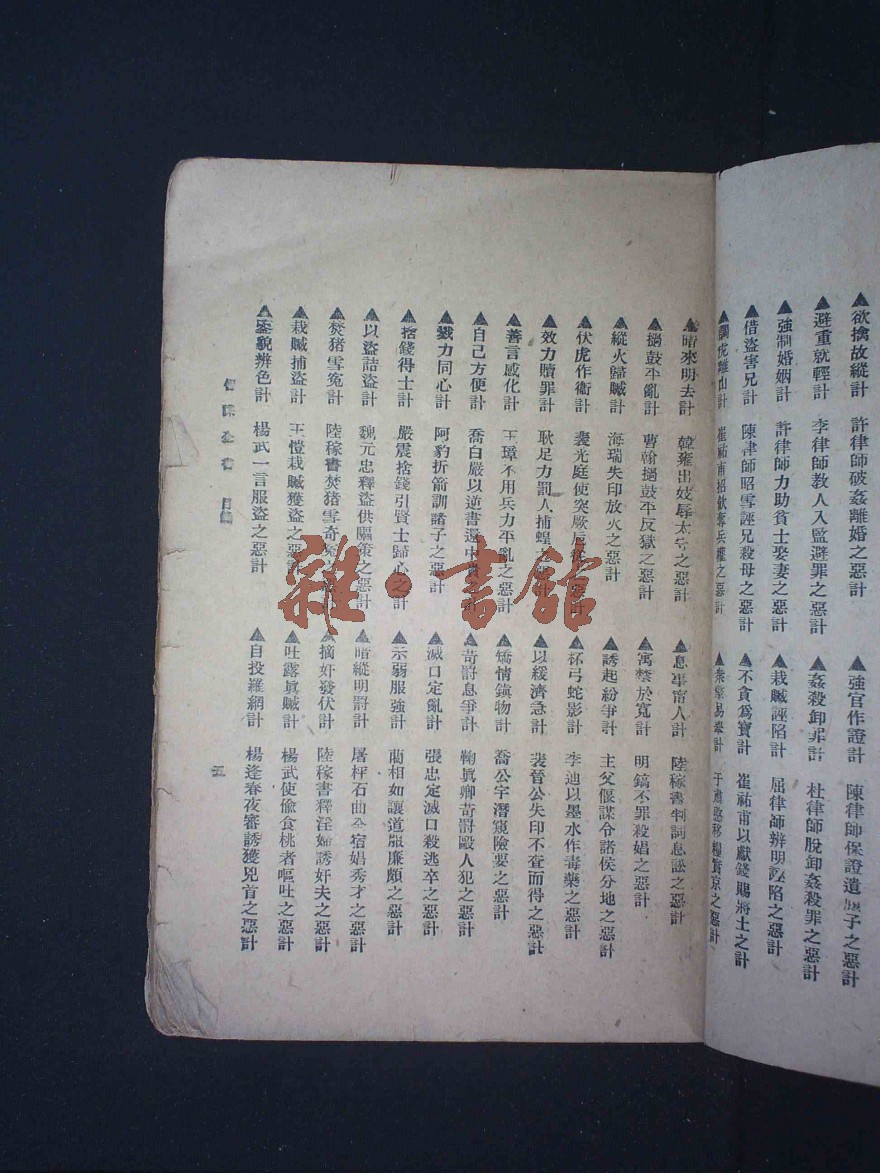 ▲欲擒故縱計　許律師破姦離婚之惡計
▲強官作證計　陳律師保證遺腹子之惡計
▲避重就輕計　李律師教人入監避罪之惡計
▲姦殺卸罪計　杜律師脫卸姦殺罪之惡計
▲強制婚姻計　許律師力助貧士娶妻之惡計
▲栽贓誣陷計　屈律師辨明誣陷之惡計
▲借盜害兄計　陳律師昭雪誣兄殺母之惡計
▲不貪爲寶計　崔祐甫以獻錢賜將士之計
▲調虎離山計　崔祐甫招飲奪兵權之惡計
計　于肅愍移糧實京之惡計
▲暗來明去計　韓雍出妓辱太守之惡計
▲息事甯人計　陸稼書判詞息訟之惡計
▲撾鼓平亂計　曹翰撾鼓平反獄之惡計
▲寓禁於寬計　明鎬不罪殺娼之惡計
▲縱火歸贓計　海瑞失印放火之惡計
▲誘起紛爭計　主父偃謀令諸侯分地之惡計
▲伏虎作衞計　裴光庭使突厥扈從之惡計
▲杯弓蛇影計　李迪以墨水作毒藥之惡計
▲效力贖罪計　耿足力罰人捕蝗之惡計
▲以緩濟急計　裴晉公失印不查而得之惡計
▲善言感化計　王璋不用兵力平亂之惡計
▲矯情鎮物計　喬公字潛窺險要之惡計
▲自己方便計　喬白嚴以逆書還中貴之計
▲苛罸息爭計　鞠眞卿苛罸毆人犯之惡計
▲戮力同心計　阿豹折箭訓諸子之惡計
▲滅口定亂計　張忠定滅口殺逃卒之惡計
▲捨錢得士計　嚴震捨錢引賢士歸心之計
▲示弱服強計　藺相如讓道服廉頗之惡計
▲以盜詰盜計　魏元忠釋盜供驅策之惡計
▲暗縱明罸計　屠枰石曲全宿娼秀才之惡計
▲焚猪雪冤計　陸稼書焚猪雪奇冤之惡計
▲摘奸發伏計　陸稼書釋淫婦誘奸夫之惡計
▲栽贓捕盜計　王愷栽贓獲盜之惡計
▲吐露眞贓計　楊武使偷食桃者嘔吐之惡計
▲鑒貌辨色計　楊武一言服盜之惡計
▲自投羅網計　楊逢春夜審誘獲兇首之惡計
全書　目錄
五
雜·書館